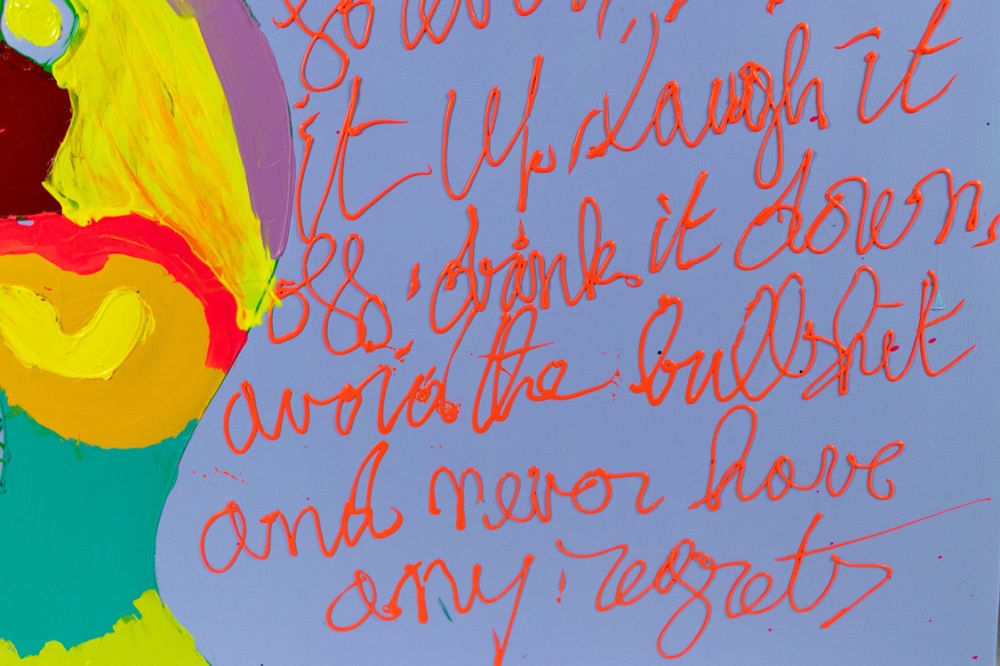 it up, laugh it
off, drink it down,
avoid the bullshit
and never have
any regrets